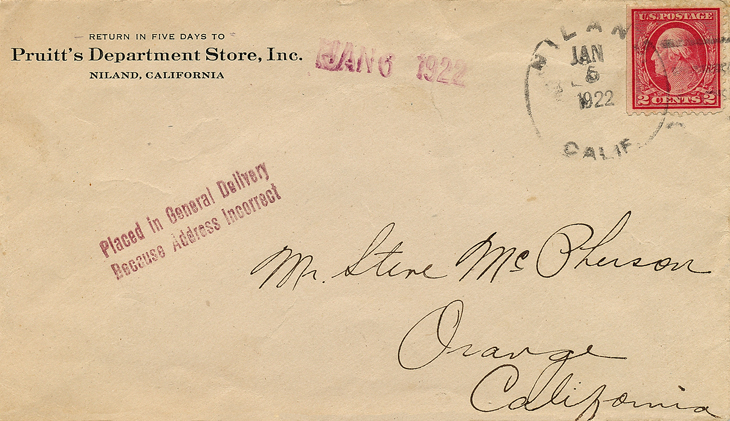 RETURN IN FIVE DAYS TO
Pruitt's Department Store, Inc.
NILAND, CALIFORNIA
JAN 6 1922
NILAND
JAN
5
1922
CALIF.
U.S. POSTAGE
2 CENTS 2
Placed in General Delivery
Because Address Incorrect
Mr. Steve McPherson
Orange
California